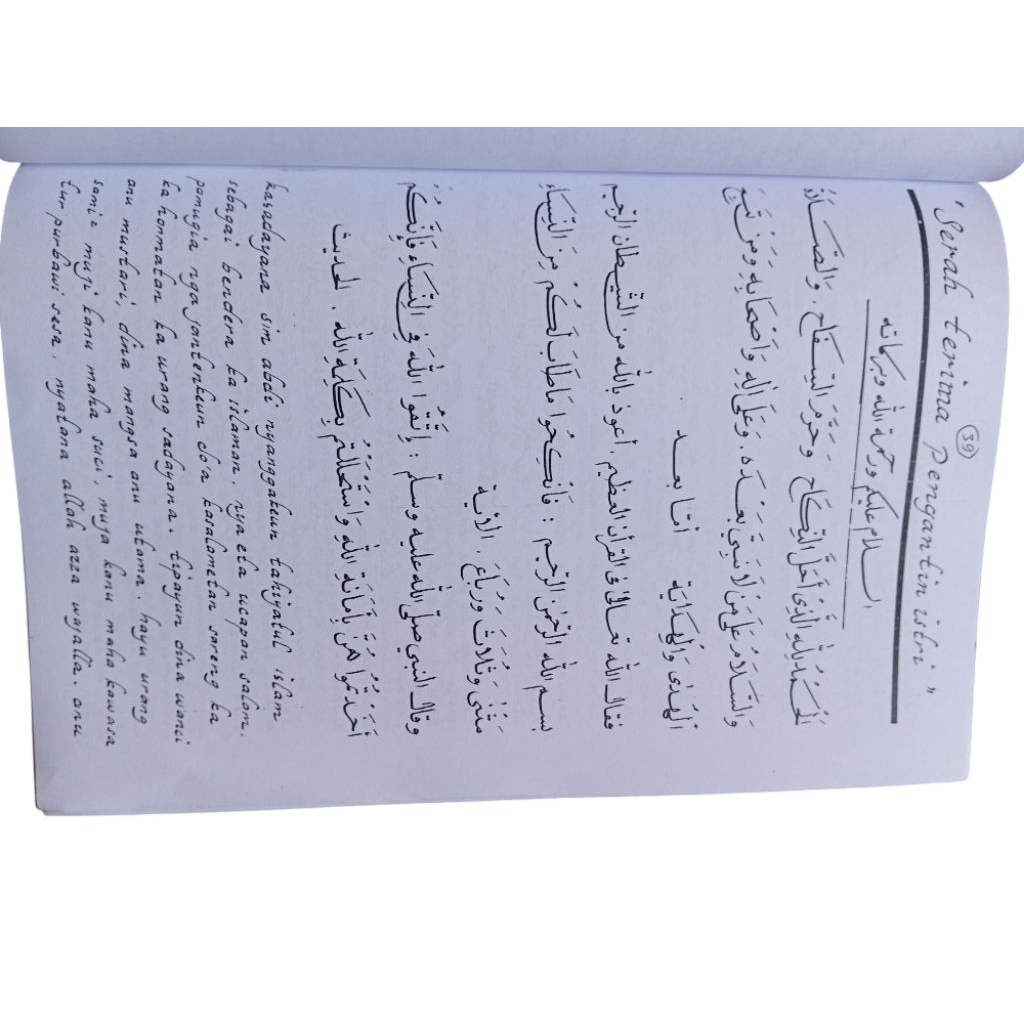 (39)
"Serah terima pengantin istri"
السلام عليكم ورحمة الله وبركاته
اَلْحَمْدُ لِلّٰهِ الَّذِى أَحَلَّ النِّكَاحَ وَحَرَّمَ السِّفَاحَ. وَالصَّلَاةُ
وَالسَّلَامُ عَلَى مَنْ لَا نَبِيَّ بَعْدَهُ. وَعَلَى اٰلِهِ وَأَصْحَابِهِ وَمَنْ تَبِعَ
الْهُدَى وَالْهِدَايَة أمّا بعد
فقال الله تعالى فى القرآن العظيم. أعوذ بالله من الشّيطان الرّجيم
بسم الله الرّحمن الرّحيم : فَانْكِحُوا مَاطَابَ لَكُمْ مِنَ النِّسَاءِ
مَثْنَى وَثُلَاثَ وَرُبَاعَ. الاٰية
وقال النبي صلّى الله عليه وسلّم : إِتَّقُوا اللّٰهَ فِى النِّسَاءِ فَإِنَّكُمْ
أَخَذْتُمُوْ هُنَّ بِأَمَانَةِ اللّٰهِ وَاسْتَحْلَلْتُمْ بِكَلِمَةِ اللّٰهِ. الحديث
kasadayana sim abdi nyanggakeun tahiyatul islam
sebagai bendera ka islaman, nya eta ucapan salam.
pamugia ngajantenkeun do'a kasalametan sareng ka
ka hormatan ka urang sadayana. tipayun dina wanci
anu mustari, dina mangsa anu utama. hayu urang
sami² muji kanu maha suci, muja kanu maha kawasa
tur purbawisesa, nyatana allah azza wajalla. anu